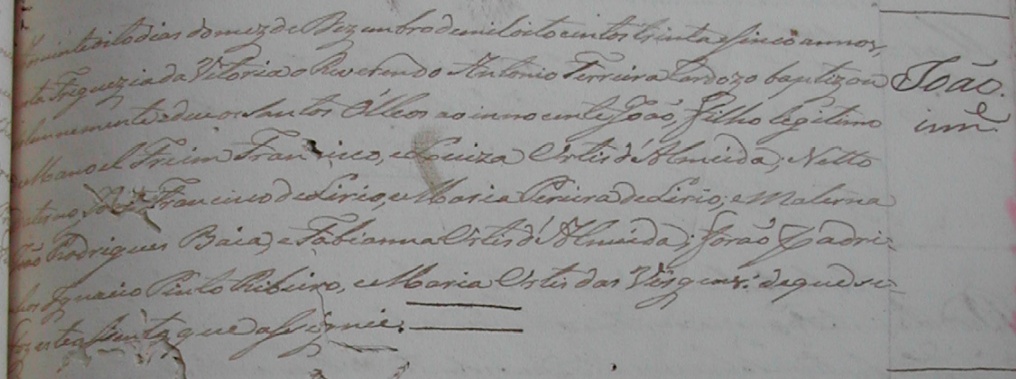 vinte oito dias do mez de Dezembro de mil oito centos trinta e sinco annos,
nesta Freguezia da Vitoria o Reverendo Antonio Ferreira Cardozo baptizou
solemnemente e deu os Santos Olleos ao innocente João, filho legitimo
de Manoel Freim Francisco, e Luiza Ortis d'Almeida; Netto
Paterno José Francisco de Lirio, e Maria Pereira de Lirio; e Materna
João Rodrigues Baia, e Fabianna Ortis d'Almeida; forão Padri-
nhos Ignacio Pinto Ribeiro, e Maria Ortis das que se
fez este assento que assignei.
João.
inne